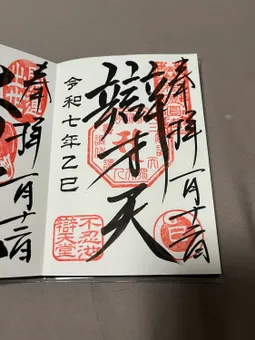 奉拝
一月十二日
辯才天
令和七年乙巳
不忍池
辯天堂
奉拝
一月十二日